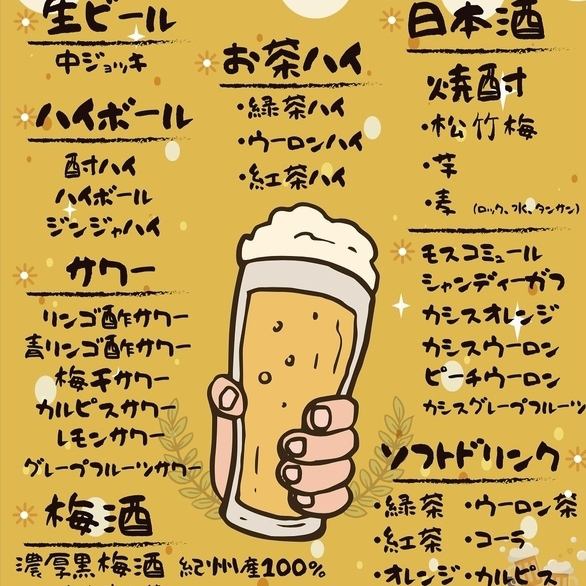 生ビール
中ジョッキ
ハイボール
酎ハイ
ハイボール
ジンジャハイ
サワー
リンゴ酢サワー
青リンゴ酢サワー
梅干サワー
カルピスサワー
レモンサワー
グレープフルーツサワー
梅酒
濃厚黒梅酒 紀州産100%
お茶ハイ
・緑茶ハイ
・ウーロンハイ
・紅茶ハイ
日本酒
焼酎
・松竹梅
・芋
・麦 (ロック、水、タンサン)
モスコミュール
シャンディーガフ
カシスオレンジ
カシスウーロン
ピーチウーロン
カシスグレープフルーツ
ソフトドリンク
・緑茶 ・ウーロン茶
・紅茶 ・コーラ
・オレンジ ・カルピス